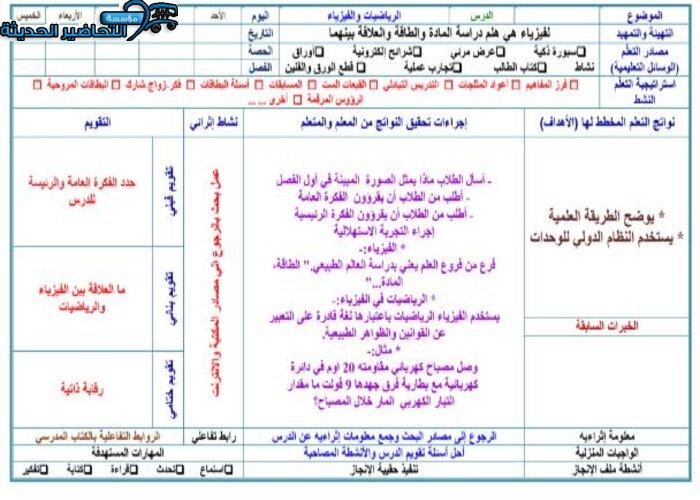 مؤسسة
التحاضير الحديثة
الموضوع
الدرس
الرياضيات والفيزياء
اليوم
الأحد
الأربعاء
الخميس
التهيئة والتمهيد
لفيزياء هي هلم دراسة المادة والطاقة والعلاقة بينهما
التاريخ
مصادر التعلم
سبورة ذكية
عرض مرئي
شرائح إلكترونية
أوراق
الحصة
(الوسائل التعليمية)
نشاط
كتاب الطالب
تجارب عملية
قطع الورق والفلين
الفصل
استراتيجية التعلم
النشط
فرز المفاهيم
أعواد المثلجات
التدريس التبادلي
القبعات الست
المسابقات
أسئلة البطاقات
فكر-زواج شارك
البطاقات المروحية
الرؤوس المرقمة
أخرى ... ...
نواتج التعلم المخطط لها (الأهداف)
إجراءات تحقيق النواتج من المعلم والمتعلم
نشاط إثرائي
التقويم
* يوضح الطريقة العلمية
* يستخدم النظام الدولي للوحدات
الخبرات السابقة
- أسأل الطلاب ماذا يمثل الصورة المبينة في أول الفصل
- أطلب من الطلاب أن يقرؤون الفكرة العامة
- أطلب من الطلاب أن يقرؤون الفكرة الرئيسية
إجراء التجربة الاستهلالية
* الفيزياء:-
فرع من فروع العلم يعني بدراسة العالم الطبيعي." الطاقة،
المادة..."
* الرياضيات في الفيزياء:-
يستخدم الفيزياء الرياضيات باعتبارها لغة قادرة على التعبير
عن القوانين والظواهر الطبيعية.
* مثال:-
وصل مصباح كهربائي مقاومته 20 اوم في دائرة
كهربائية مع بطارية فرق جهدها 9 فولت ما مقدار
التيار الكهربي المار خلال المصباح؟
عمل بحث بالرجوع الى مصادر المكتبة والانترنت
تقويم قبلي
حدد الفكرة العامة والرئيسة
للدرس
تقويم بنائي
ما العلاقة بين الفيزياء
والرياضيات
تقويم ختامي
رقابة ذاتية
معلومة إثرائيه
الرجوع إلى مصادر البحث وجمع معلومات إثرائيه عن الدرس
رابط تفاعلي
الروابط التفاعلية بالكتاب المدرسي
الواجبات المنزلية
أحل أسئلة تقويم الدرس والأنشطة المصاحبة
المهارات المستهدفة
أنشطة ملف الإنجاز
تنفيذ حقيبة الإنجاز
استماع
تحدث
قراءة
كتابة
تفكير